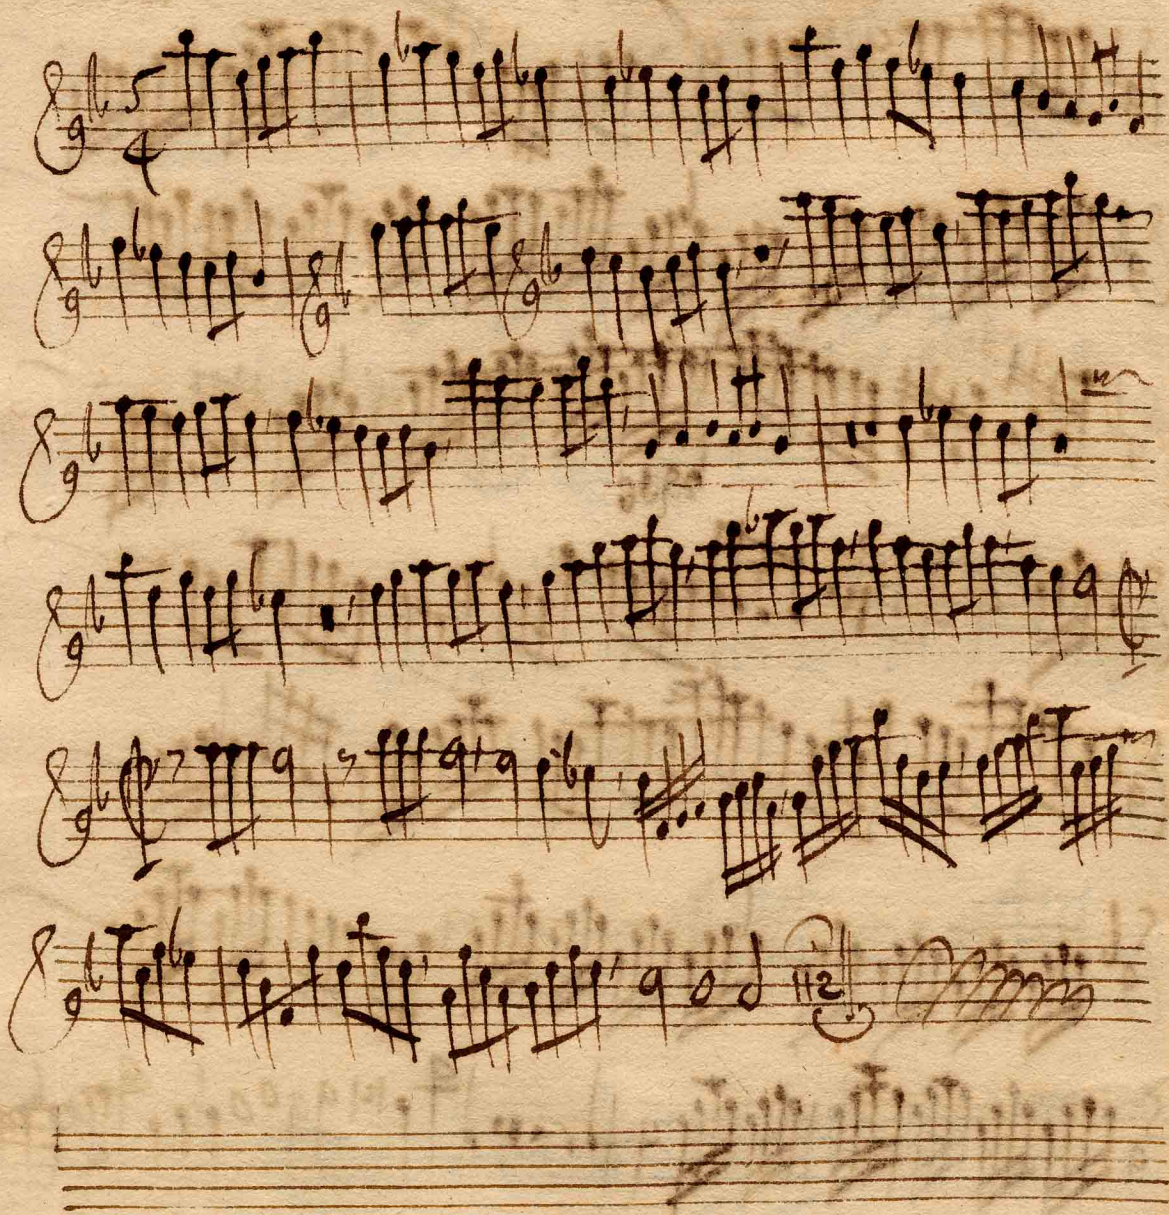 5
4
112